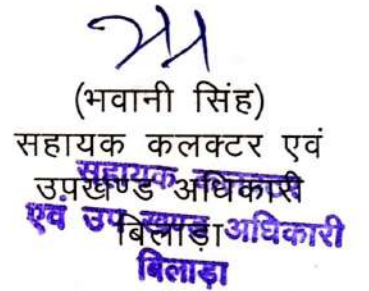 (भवानी सिंह)
सहायक कलक्टर एवं
उपखण्ड अधिकारी
बिलाड़ा
सहायक कलक्टर
एवं उप खण्ड अधिकारी
बिलाड़ा